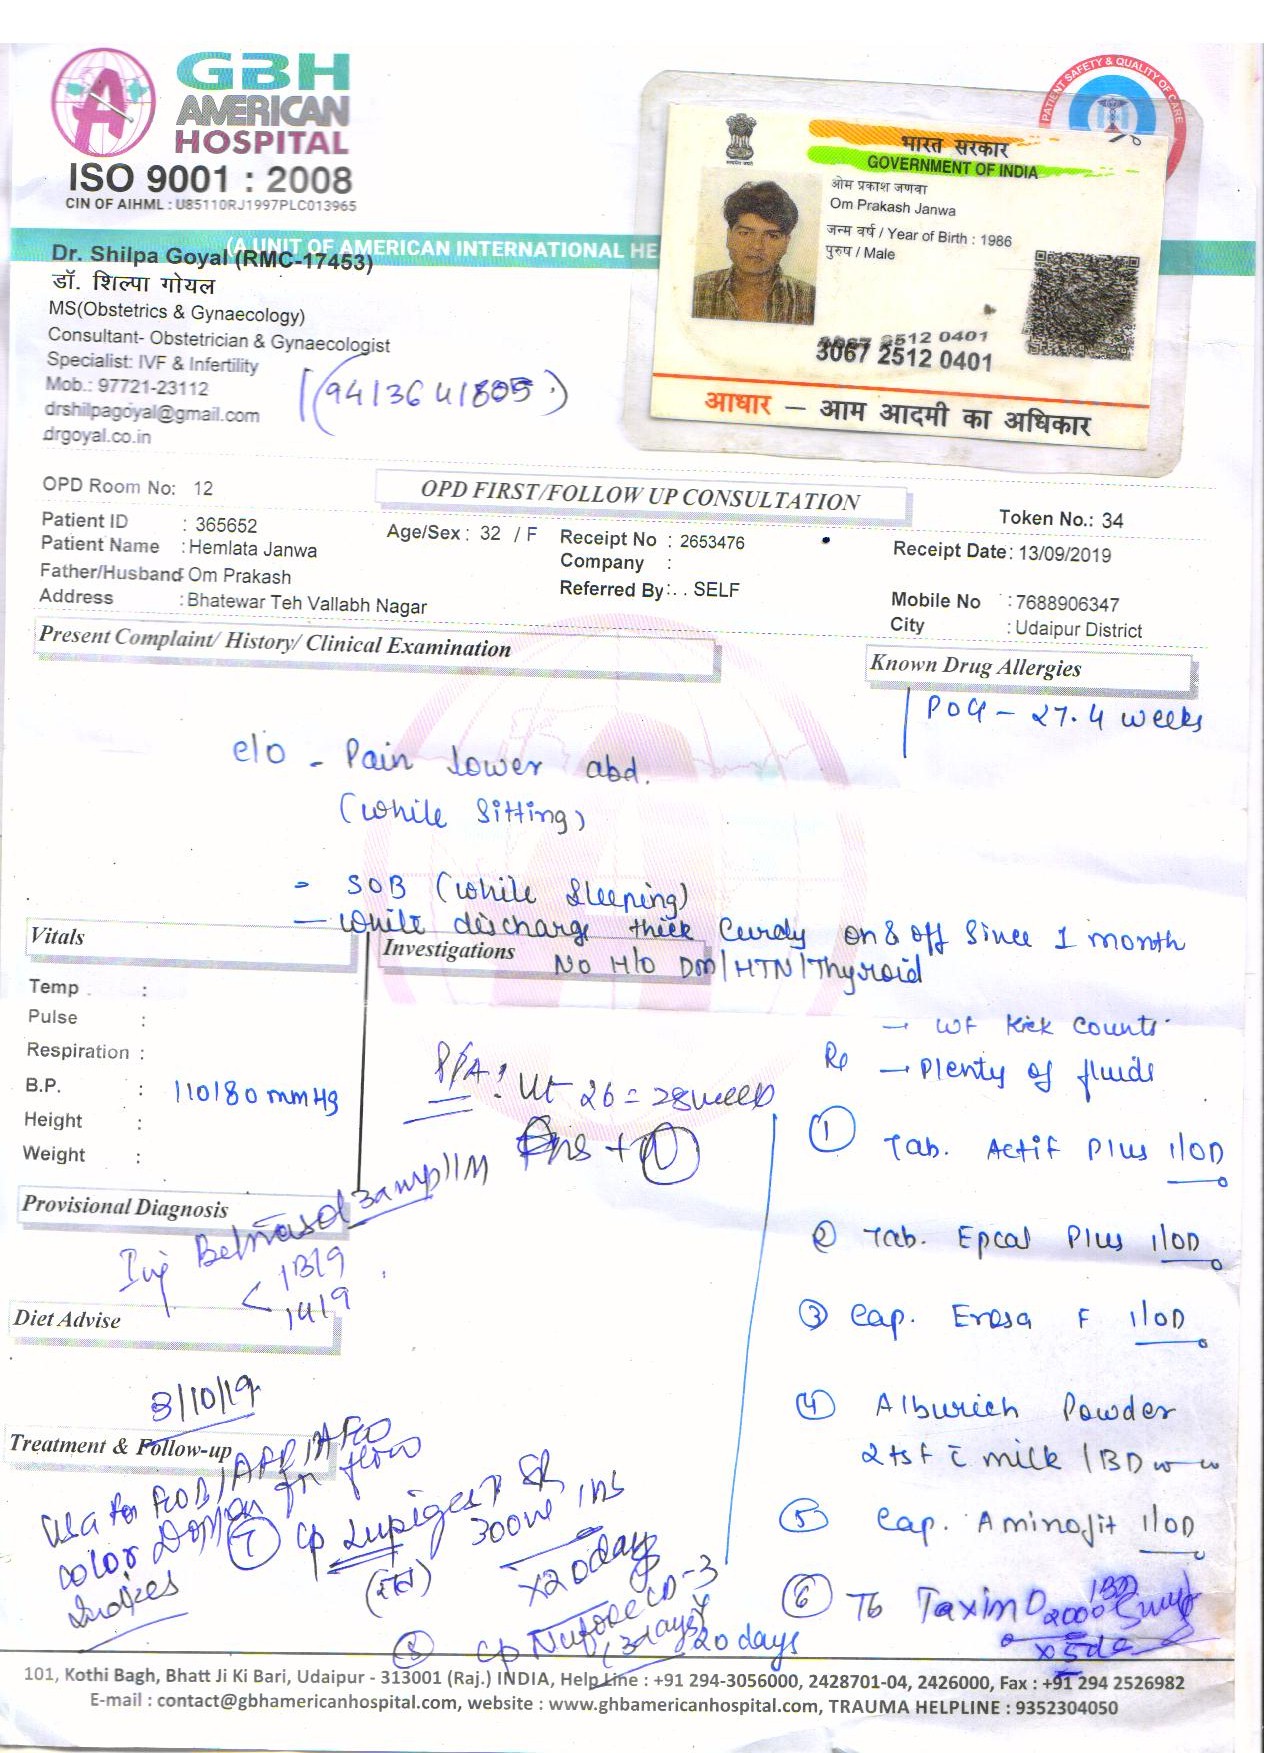 GBH
AMERICAN
HOSPITAL
ISO 9001 : 2008
CIN OF AIHML : U85110RJ1997PLC013965
PATIENT SAFETY & QUALITY OF CARE
भारत सरकार
GOVERNMENT OF INDIA
ओम प्रकाश जणवा
Om Prakash Janwa
जन्म वर्ष / Year of Birth : 1986
पुरुष / Male
3067 2512 0401
3067 2512 0401
आधार – आम आदमी का अधिकार
(A UNIT OF AMERICAN INTERNATIONAL HE
Dr. Shilpa Goyal (RMC-17453)
डॉ. शिल्पा गोयल
MS(Obstetrics & Gynaecology)
Consultant- Obstetrician & Gynaecologist
Specialist: IVF & Infertility
Mob.: 97721-23112
drshilpagoyal@gmail.com
drgoyal.co.in
(9413641805)
OPD Room No: 12
OPD FIRST/FOLLOW UP CONSULTATION
Token No.: 34
Patient ID : 365652
Age/Sex : 32 / F
Receipt No : 2653476
Receipt Date: 13/09/2019
Patient Name : Hemlata Janwa
Company :
Father/Husband: Om Prakash
Referred By:. . SELF
Mobile No : 7688906347
Address : Bhatewar Teh Vallabh Nagar
City : Udaipur District
Present Complaint/ History/ Clinical Examination
Known Drug Allergies
POG - 27.4 weeks
c/o - Pain lower abd.
(while sitting)
- SOB (while sleeping)
- white discharge thick curdy on & off since 1 month
No H/o DM/HTN/Thyroid
Vitals
Investigations
Temp :
Pulse :
Respiration :
B.P. : 110/80 mmHg
Height :
Weight :
P/A: Ut 26=28 week
Provisional Diagnosis
Inj Betnasol 3 amp I/M
13/9
14/9
Diet Advise
3/10/19
Treatment & Follow-up
color
Indices
Rx
→ Kick counts
→ Plenty of fluids
① Tab. Actif Plus 1/OD
② Tab. Epcal Plus 1/OD
③ Cap. Erosa F 1/OD
④ Alburich Powder
2tsf c̄ milk / BD
⑤ Cap. Aminofit 1/OD
⑥ Tb Taxim O 200
x 5 da
⑦ Cp Lupigest SR
300
x 20 days
⑧ Cp Nufore CD-3
(3 days)
20 days
101, Kothi Bagh, Bhatt Ji Ki Bari, Udaipur - 313001 (Raj.) INDIA, Help Line : +91 294-3056000, 2428701-04, 2426000, Fax : +91 294 2526982
E-mail : contact@gbhamericanhospital.com, website : www.ghbamericanhospital.com, TRAUMA HELPLINE : 9352304050